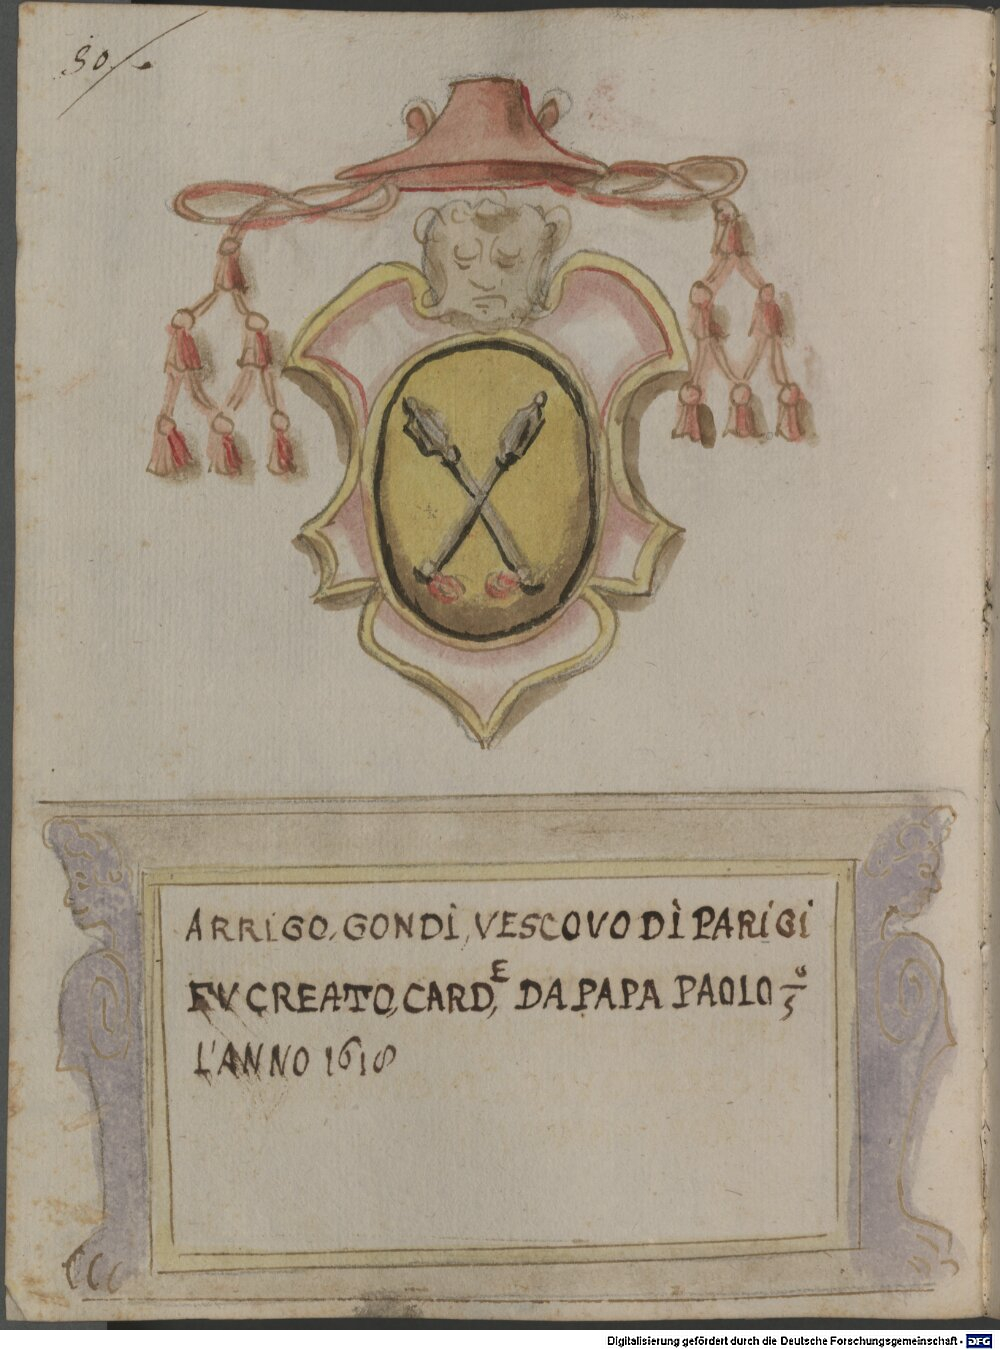 80
ARRIGO, GONDÌ, VESCOVO DÌ PARIGI
FV CREATO, CARD,E DA PAPA PAOLO 5º
L'ANNO 1618
Digitalisierung gefördert durch die Deutsche Forschungsgemeinschaft - DFG